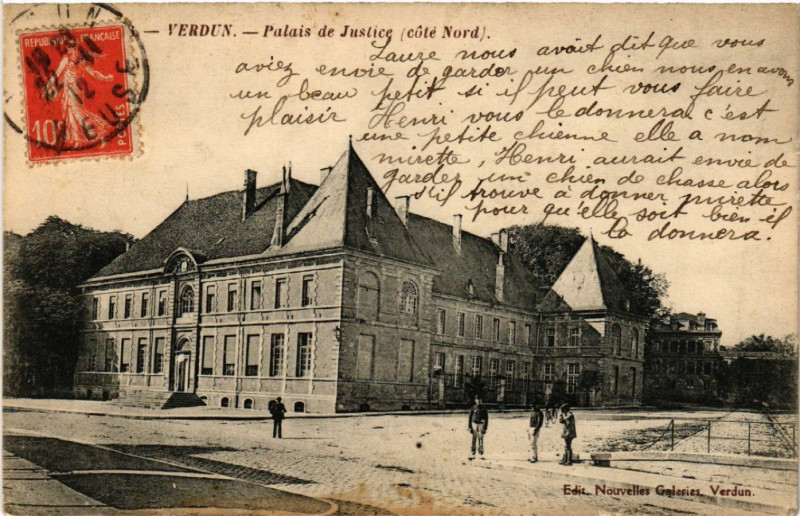 VERDUN. — Palais de Justice (côté Nord).
Lauze nous avait dit que vous
aviez envie de garder un chien nous en avons
un beau petit si il peut vous faire
plaisir Henri vous le donnera c'est
une petite chienne elle a nom
mirette, Henri aurait envie de
garder un chien de chasse alors
s'il trouve à donner mirette
pour qu'elle soit bien il
la donnera.
FRANÇAISE
10
POSTES
12
MEUSE
Edit. Nouvelles Galeries, Verdun.